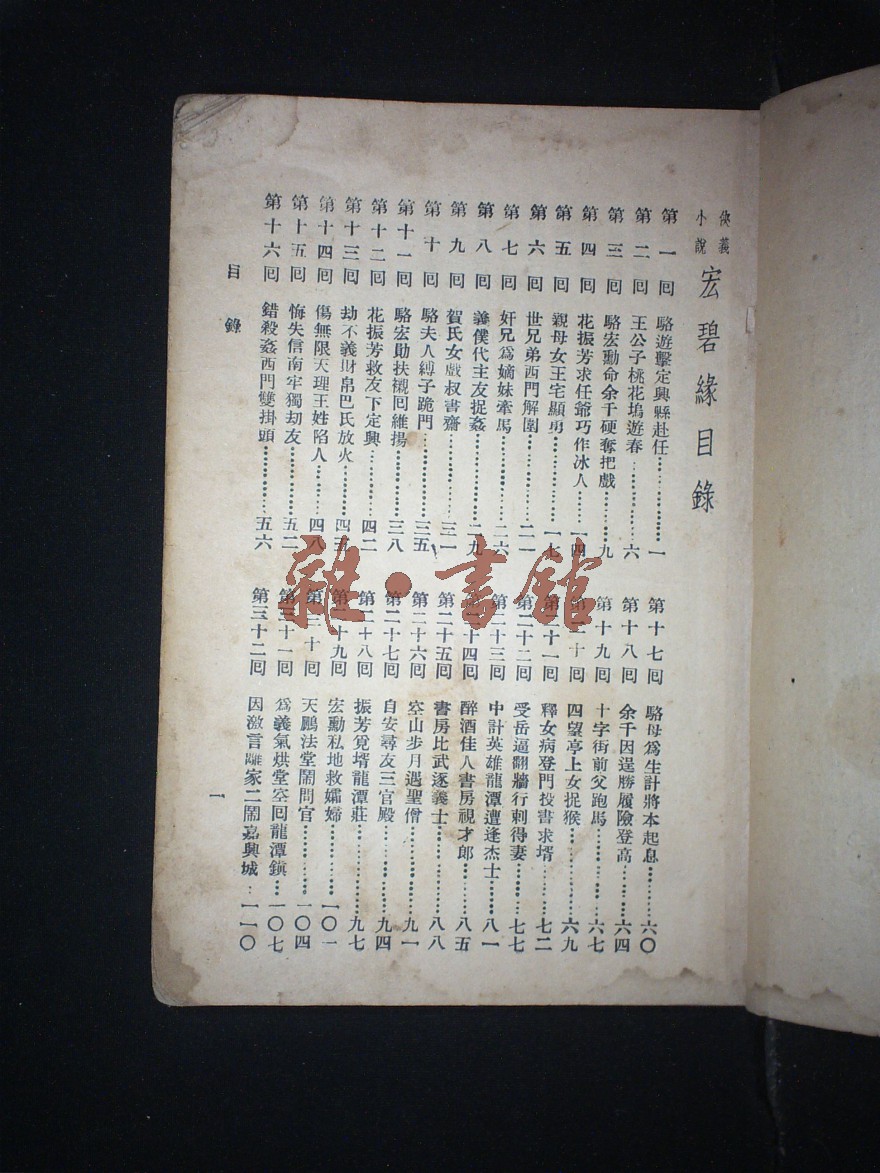 俠義小說 宏碧緣目錄
第一回 駱遊擊定興縣赴任……………一
第二回 王公子桃花塢遊春……………六
第三回 駱宏勳命余千硬奪把戲……………九
第四回 花振芳求任爺巧作冰人……………一四
第五回 親母女王宅顯勇……………一七
第六回 世兄弟西門解圍……………二一
第七回 奸兄爲嫡妹牽馬……………二六
第八回 義僕代主友捉姦……………二九
第九回 賀氏女戲叔書齋……………三一
第十回 駱夫人縛子跪門……………三五
第十一回 駱宏勛扶櫬回維揚……………三八
第十二回 花振芳救友下定興……………四二
第十三回 劫不義財帛巴氏放火……………四五
第十四回 傷無限天理王姓陷人……………四八
第十五回 悔失信南牢獨劫友……………五二
第十六回 錯殺姦西門雙掛頭……………五六
第十七回 駱母爲生計將本起息……………六〇
第十八回 余千因逞勝履險登高……………六四
第十九回 十字街前父跑馬……………六七
第二十回 四望亭上女捉猴……………六九
第二十一回 釋女病登門投書求壻……………七二
第二十二回 受岳逼翻牆行刺得妻……………七七
第二十三回 中計英雄龍潭遭逢杰士……………八一
第二十四回 醉酒佳人書房視才郎……………八五
第二十五回 書房比武逐義士……………八八
第二十六回 空山步月遇聖僧……………九一
第二十七回 自安尋友三官殿……………九四
第二十八回 振芳覓壻龍潭莊……………九七
第二十九回 宏勳私地救孀婦……………一〇一
第三十回 天鵬法堂鬧問官……………一〇四
第三十一回 爲義氣烘堂空回龍潭鎭……………一〇七
第三十二回 因激言離家二鬧嘉興城……………一一〇
目錄
一
雜·書館